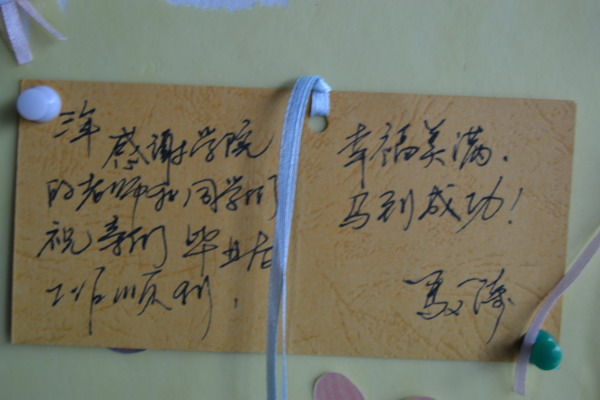 三年 感谢学院
的老师和同学们
祝亲们 毕业后
工作顺利！
幸福美满．
马到成功！